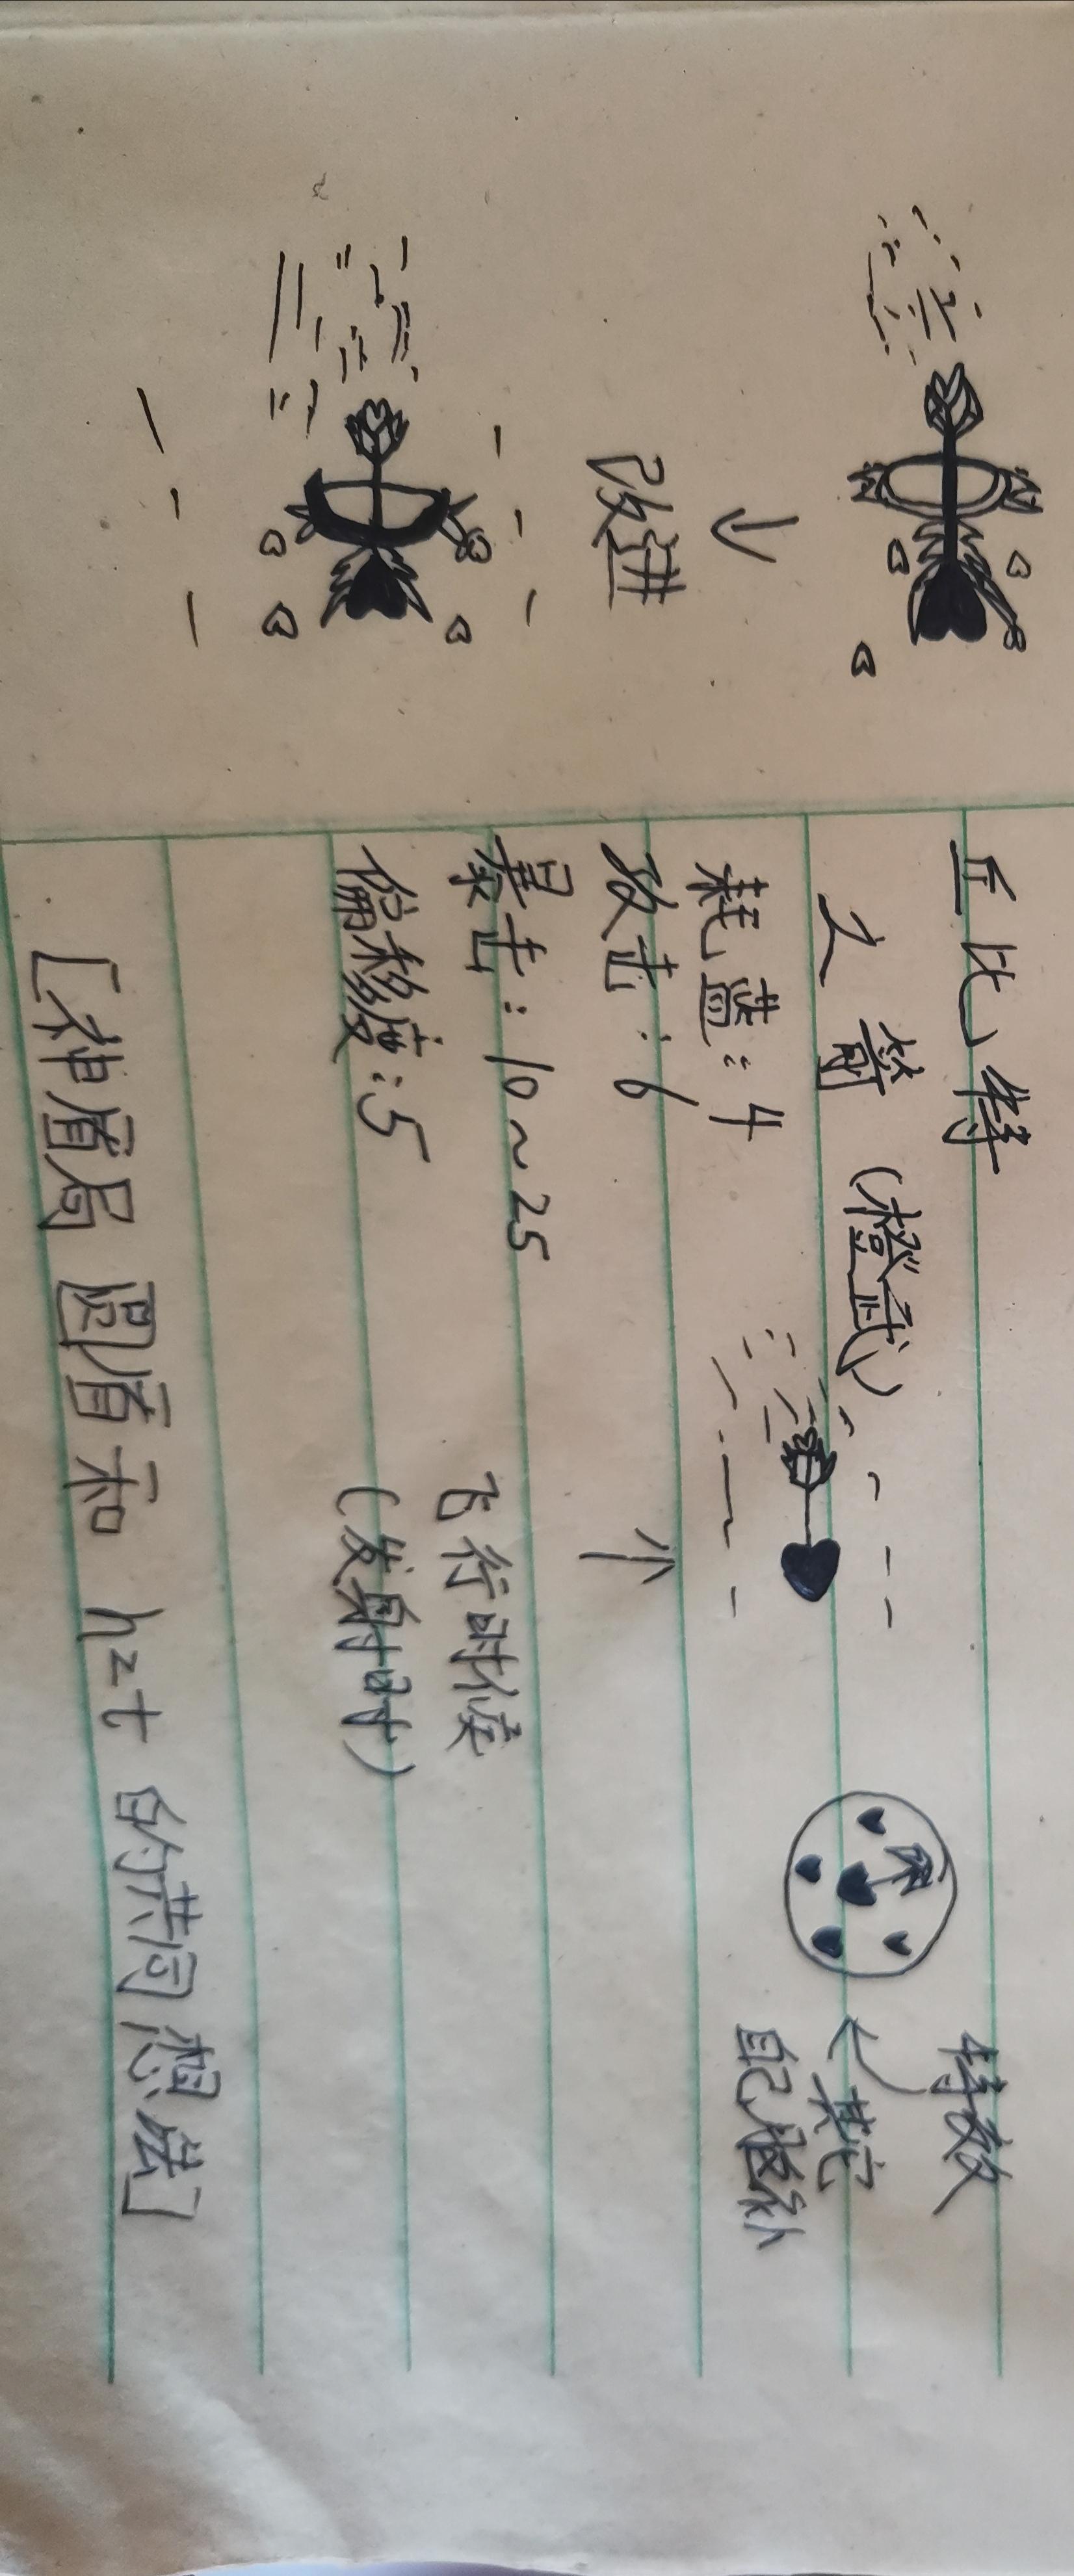 丘比特
之箭(橙武)
耗蓝:4
攻击:6
暴击:10~25
偏移度:5
改进
特效
其它
自己做补
飞行时候
(发射时)
[神盾局 圆盾和 hzt 的共同想法]